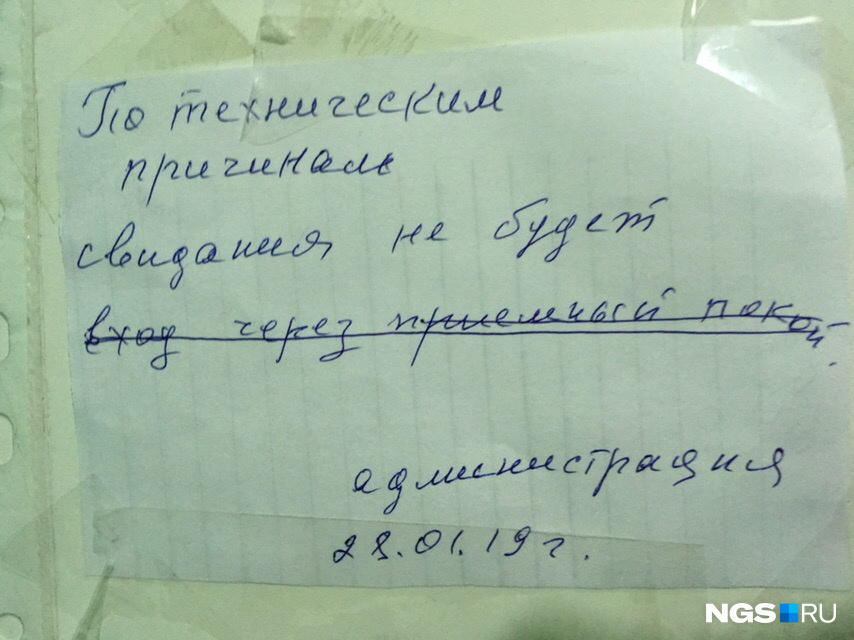 По техническим
причинам
свидания не будет
вход через приемный покой.
администрация
28.01.19 г.
NGS RU